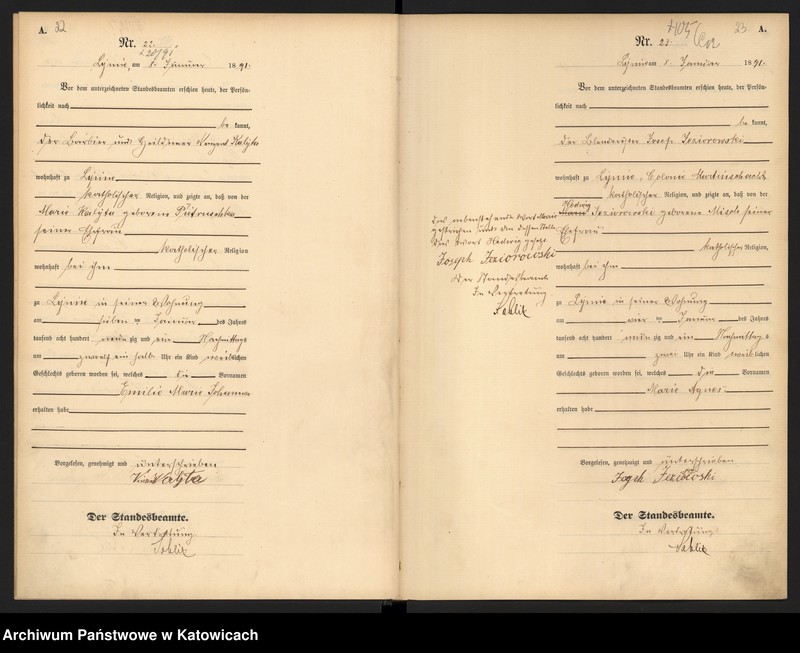 A. 22
Nr. 22.
am 8. Januar 1891.
Vor dem unterzeichneten Standesbeamten erschien heute, der Persön-
lichkeit nach
be kannt,
der Barbier und Heildiener
wohnhaft zu
katholischer Religion, und zeigte an, daß von der
Marie geborene
seiner Ehefrau
katholischer Religion
wohnhaft bei ihm
zu in seiner Wohnung
am sieben ten Januar des Jahres
tausend acht hundert neun zig und ein Nachmittags
um zwoelf ein halb Uhr ein Kind weiblichen
Geschlechts geboren worden sei, welches die Vornamen
Emilie Marie Johanna
erhalten habe
Vorgelesen, genehmigt und unterschrieben
Der Standesbeamte.
In Vertretung
Sablik
23 A.
Nr. 23
am 8. Januar 1891.
Vor dem unterzeichneten Standesbeamten erschien heute, der Persön-
lichkeit nach
be kannt,
der Josef Jeziorowski
wohnhaft zu Colonie Martinschacht
katholischer Religion, und zeigte an, daß von der
Hedwig
Marie Jeziorowski geborene seiner
Ehefrau
katholischer Religion,
wohnhaft bei ihm
zu in seiner Wohnung
am vier ten Januar des Jahres
tausend acht hundert neun zig und ein Nachmittags
um zwei Uhr ein Kind weiblichen
Geschlechts geboren worden sei, welches den Vornamen
Marie Agnes
erhalten habe
Vorgelesen, genehmigt und unterschrieben
Der Standesbeamte.
In Vertretung
Sablik
Das nebenstehende Wort Marie
gestrichen und an dessen Stelle
das Wort Hedwig gesetzt
Joseph Jeziorowski
Der Standesbeamte
In Vertretung
Sablik
Archiwum Państwowe w Katowicach